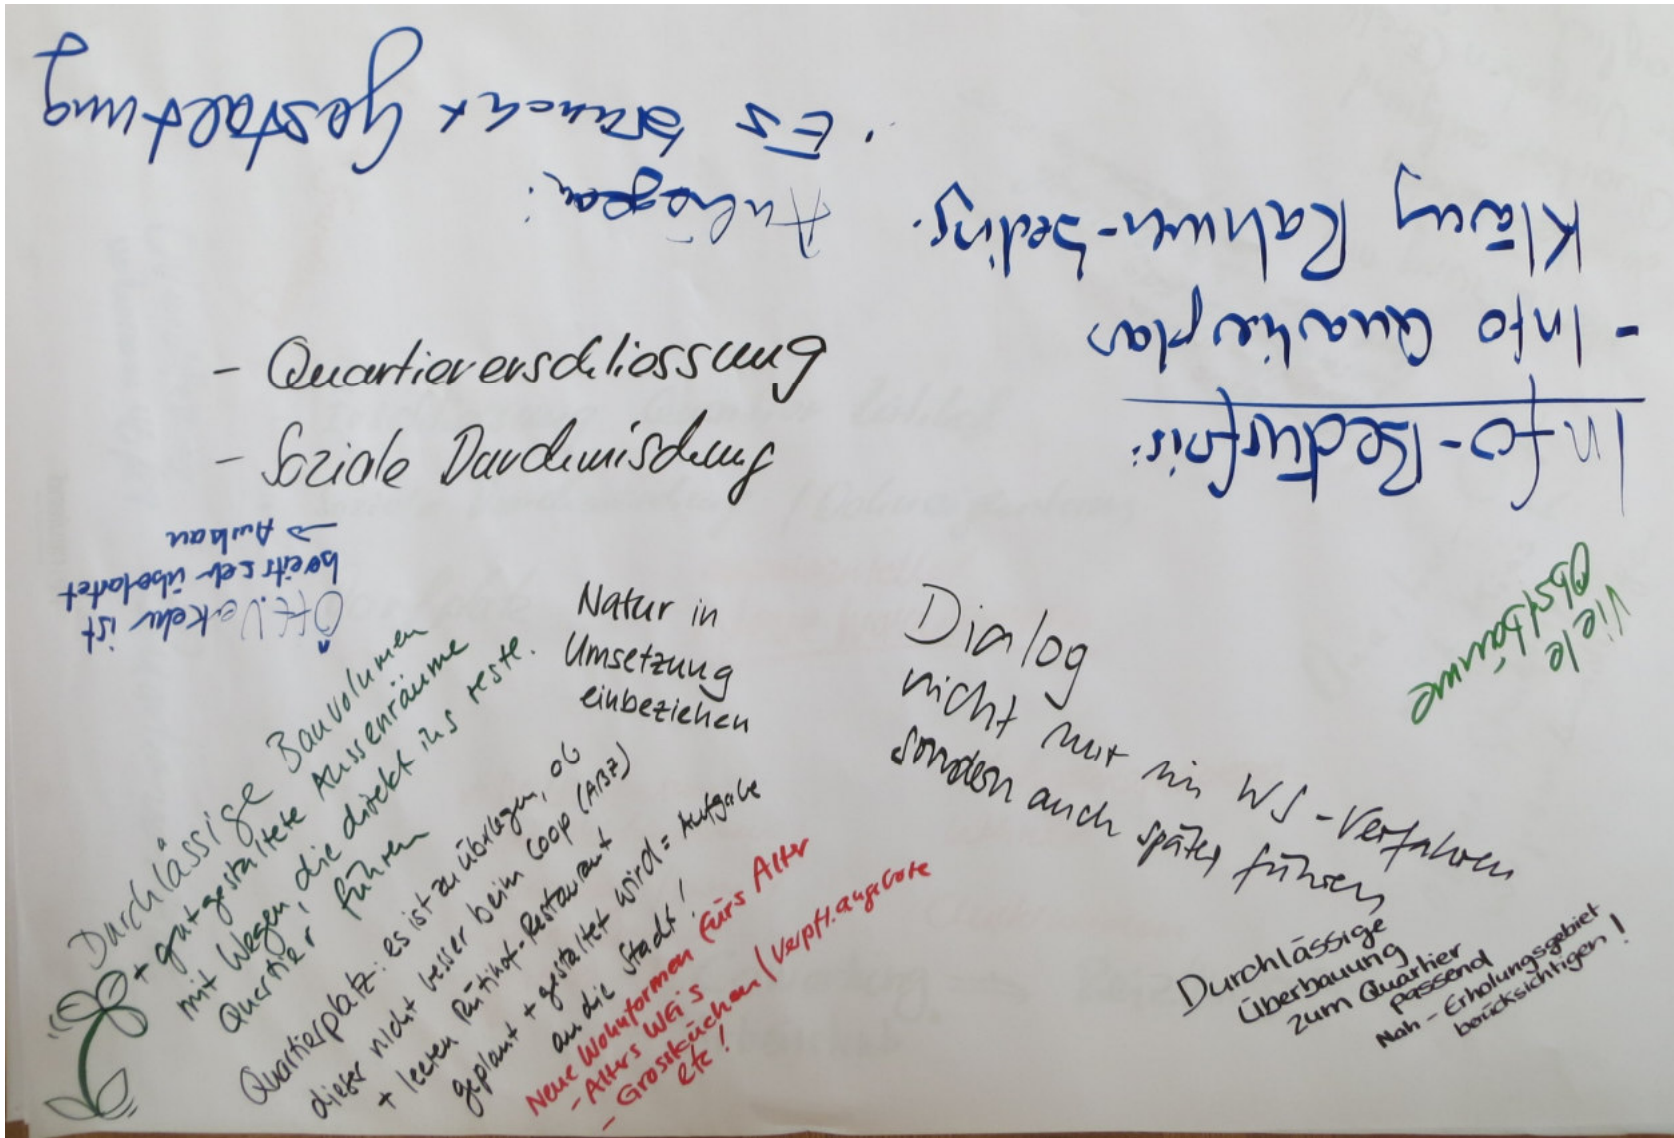 Anliegen:
· Es braucht Gestaltung
Info-Bedürfnis:
- Info Quartierplan
Klärung Rahmen-beding.
- Quartiererschliessung
- Soziale Durchmischung
Öff. Verkehr ist
bereits sehr überlastet
→ Ausbau
Natur in
Umsetzung
einbeziehen
Dialog
nicht nur im WS-Verfahren
sondern auch später führen
Viele
Obstbäume
Durchlässige Bauvolumen
+ gut gestaltete Aussenräume
mit Wegen, die direkt ins reste.
Quartier führen
Quartierplatz: es ist zu überlegen, ob
dieser nicht besser beim Coop (ABZ)
+ leeren Rütihof-Restaurant
geplant + gestaltet wird = Aufgabe
an die Stadt!
Neue Wohnformen fürs Alter
- Alters WG's
- Grossküchen / Verpfl.angebote
etc!
Durchlässige
Überbauung
zum Quartier
passend
Nah-Erholungsgebiet
berücksichtigen!